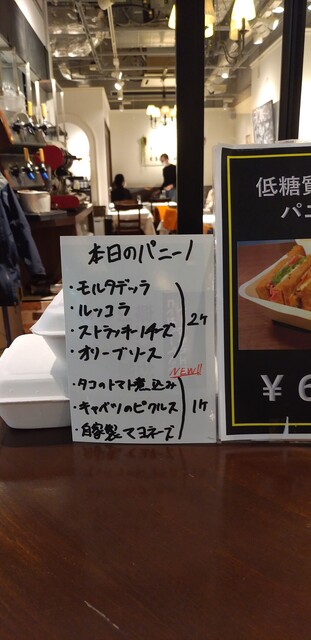 本日のパニーノ
・モルタデッラ
・ルッコラ
・ストラッキーノチーズ
・オリーブソース
2ケ
NEW!!
・タコのトマト煮込み
・キャベツのピクルス
・自家製マヨネーズ
1ケ
低糖質
パニ
¥6